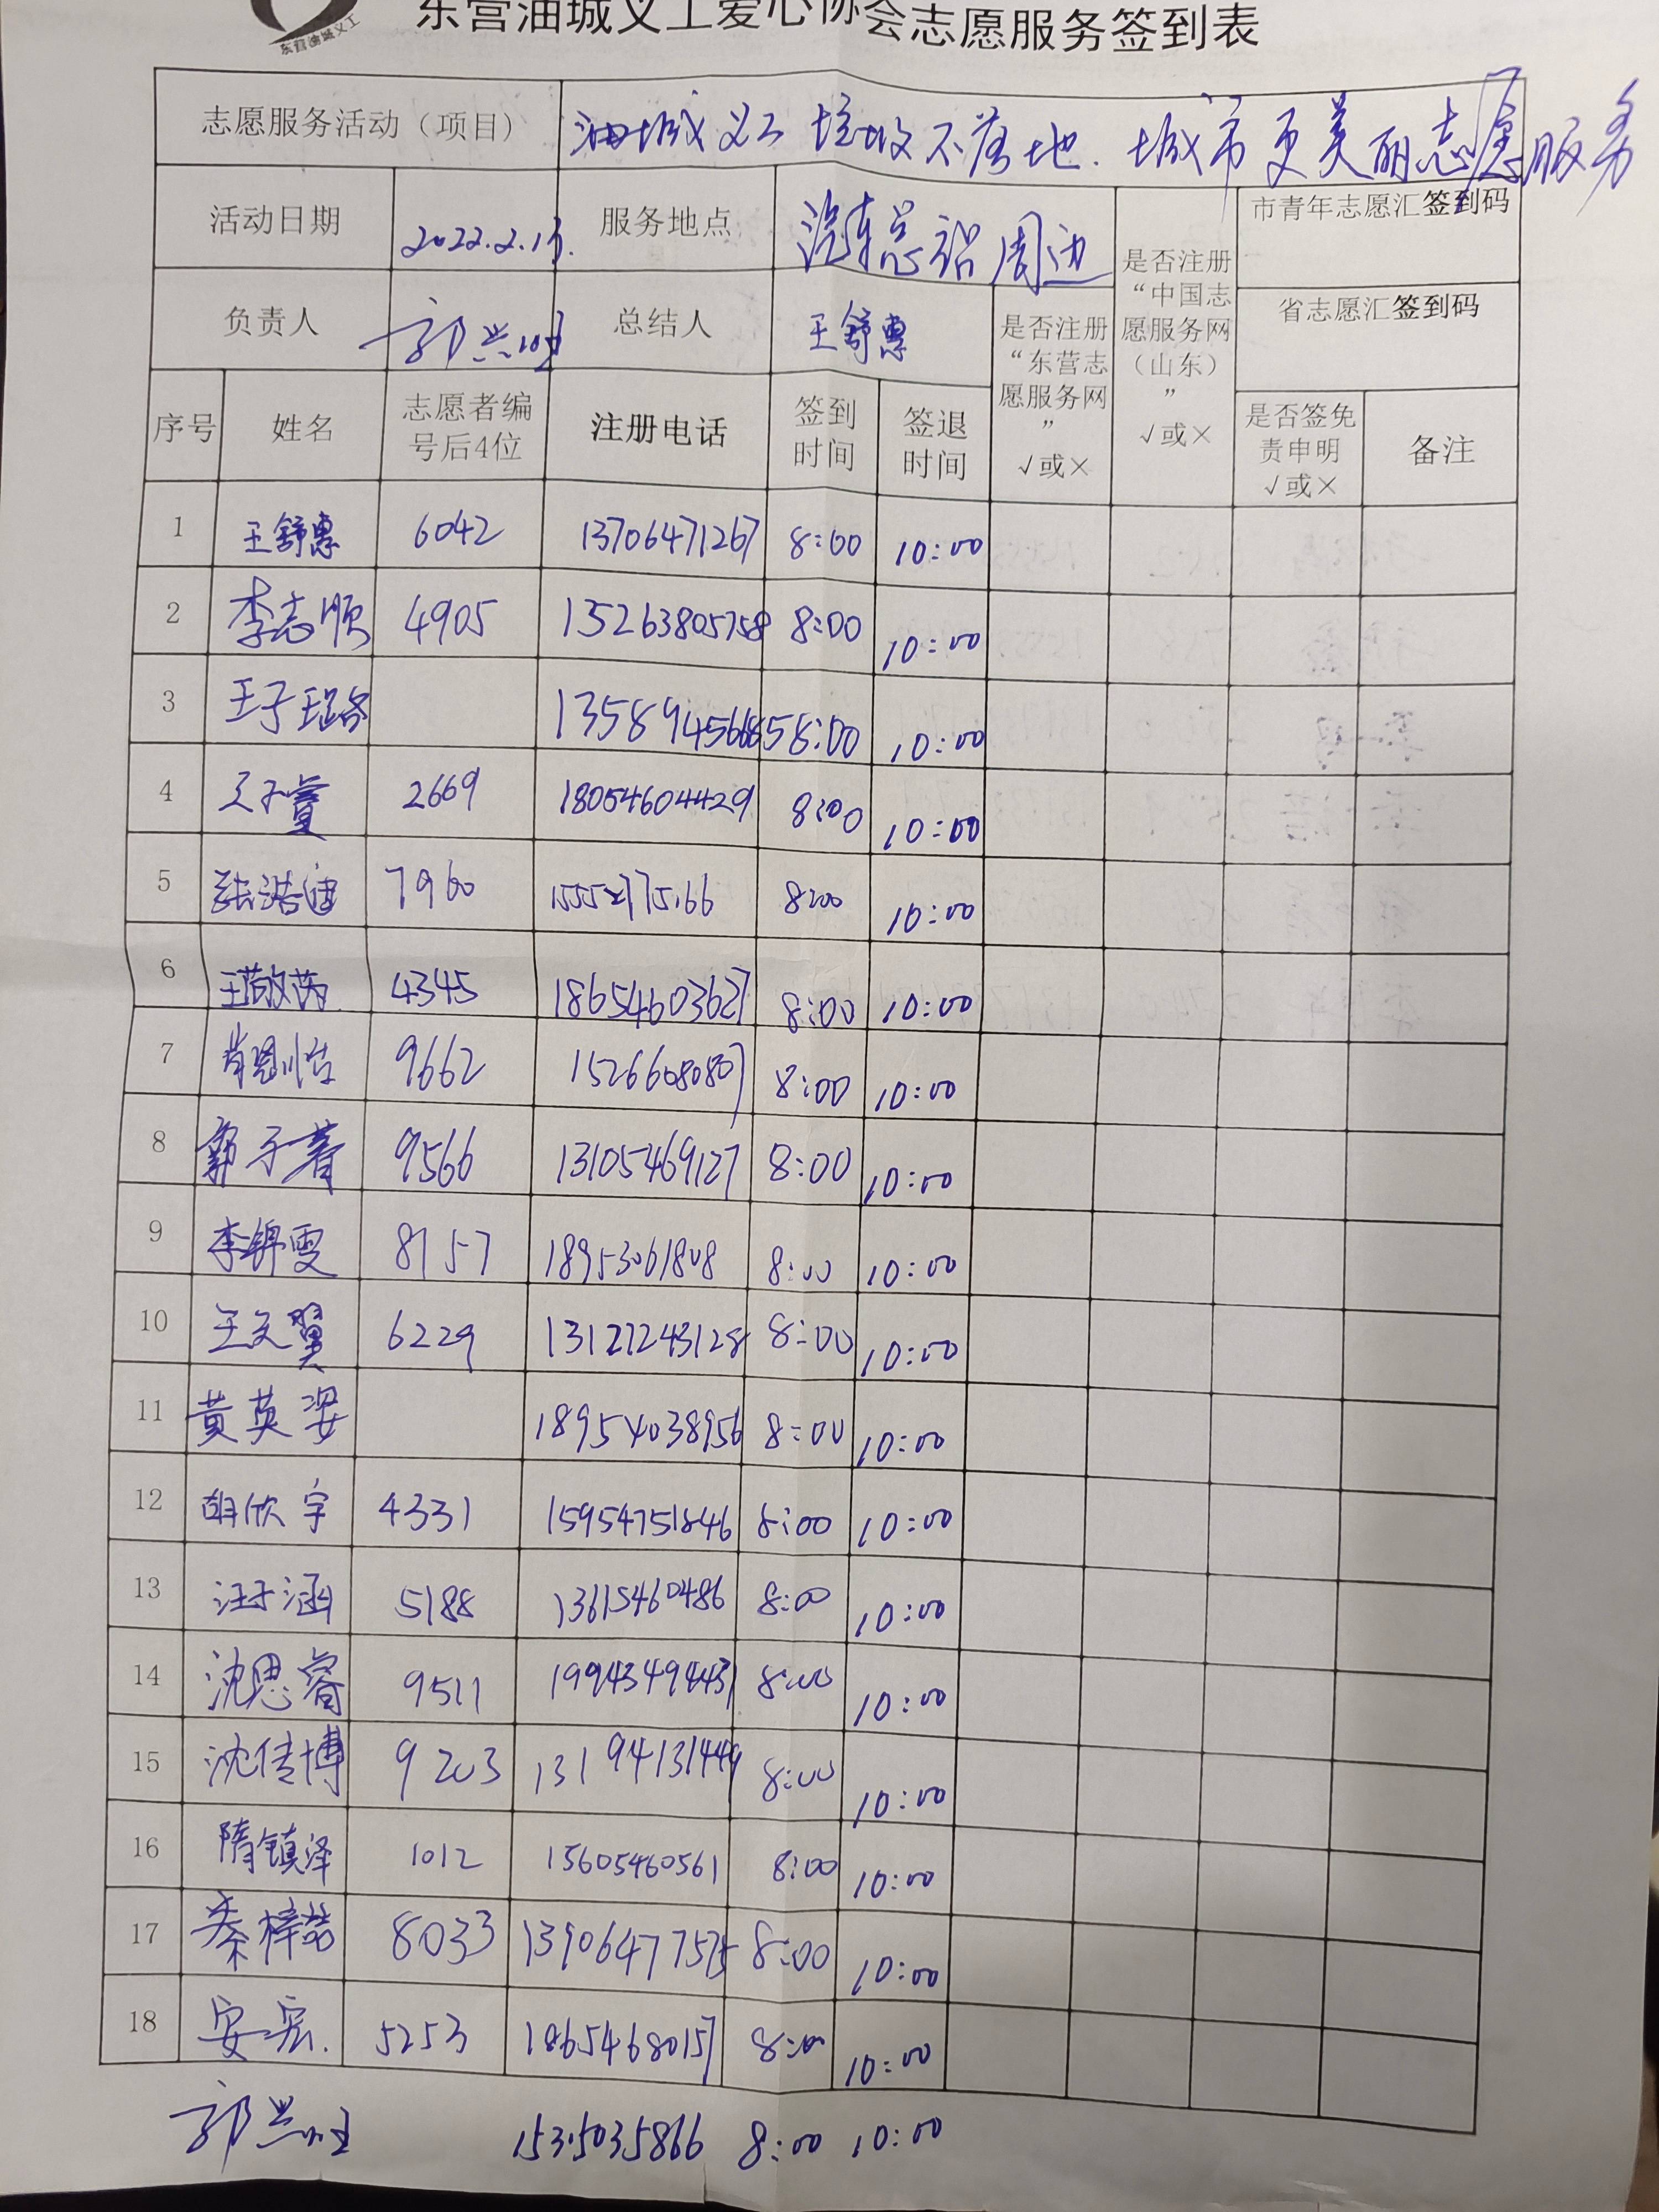 东营油城义工
东营油城义工爱心协会志愿服务签到表
志愿服务活动（项目） 油城义工 垃圾不落地. 城市更美丽志愿服务
活动日期 2022.2.13. 服务地点 汽车总站周边
市青年志愿汇签到码
负责人 郭兴旺 总结人 王舒惠
省志愿汇签到码
序号 姓名 志愿者编号后4位 注册电话 签到时间 签退时间 是否注册“东营志愿服务网” √或× 是否注册“中国志愿服务网（山东）” √或× 是否签免责申明 √或× 备注
1 王舒惠 6042 13706471267 8:00 10:00
2 李志顺 4905 15263805758 8:00 10:00
3 王子 8:00 10:00
4 2669 18054604429 8:00 10:00
5 张浩迪 7960 8:00 10:00
6 王 4345 18654603627 8:00 10:00
7 肖恩 9662 15266080807 8:00 10:00
8 郭子 9566 13105469127 8:00 10:00
9 李锦雯 8157 18953061808 8:00 10:00
10 王文翼 6229 13127243128 8:00 10:00
11 黄英 18954038956 8:00 10:00
12 胡欣宇 4331 15954751846 8:00 10:00
13 汪于涵 5188 13615460486 8:00 10:00
14 沈思睿 9511 19943494431 8:00 10:00
15 沈传博 9203 13194131449 8:00 10:00
16 隋镇泽 1012 15605460561 8:00 10:00
17 秦梓喆 8033 13906477575 8:00 10:00
18 安宏. 5253 18654680157 8:00 10:00
郭兴旺 15315035866 8:00 10:00